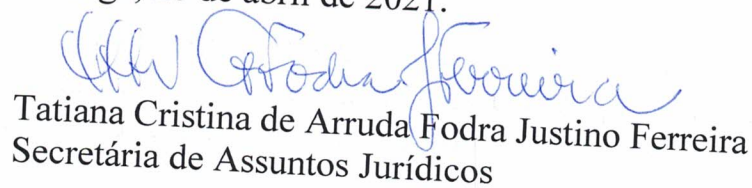 de abril de 2021.
Fodra Ferreira
Tatiana Cristina de Arruda Fodra Justino Ferreira
Secretária de Assuntos Jurídicos